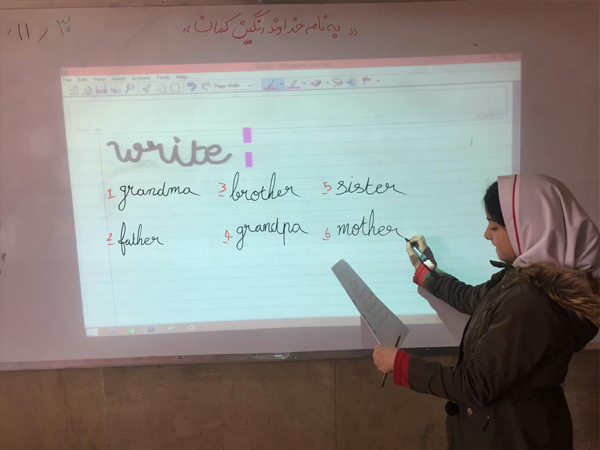 ,, به نام خداوند رنگین کمان ,,
۳۰ / ۱۱ /
File Edit View Insert Actions Tools Help
Page Width
write :
1 grandma 3 brother 5 sister
2 father 4 grandpa 6 mother